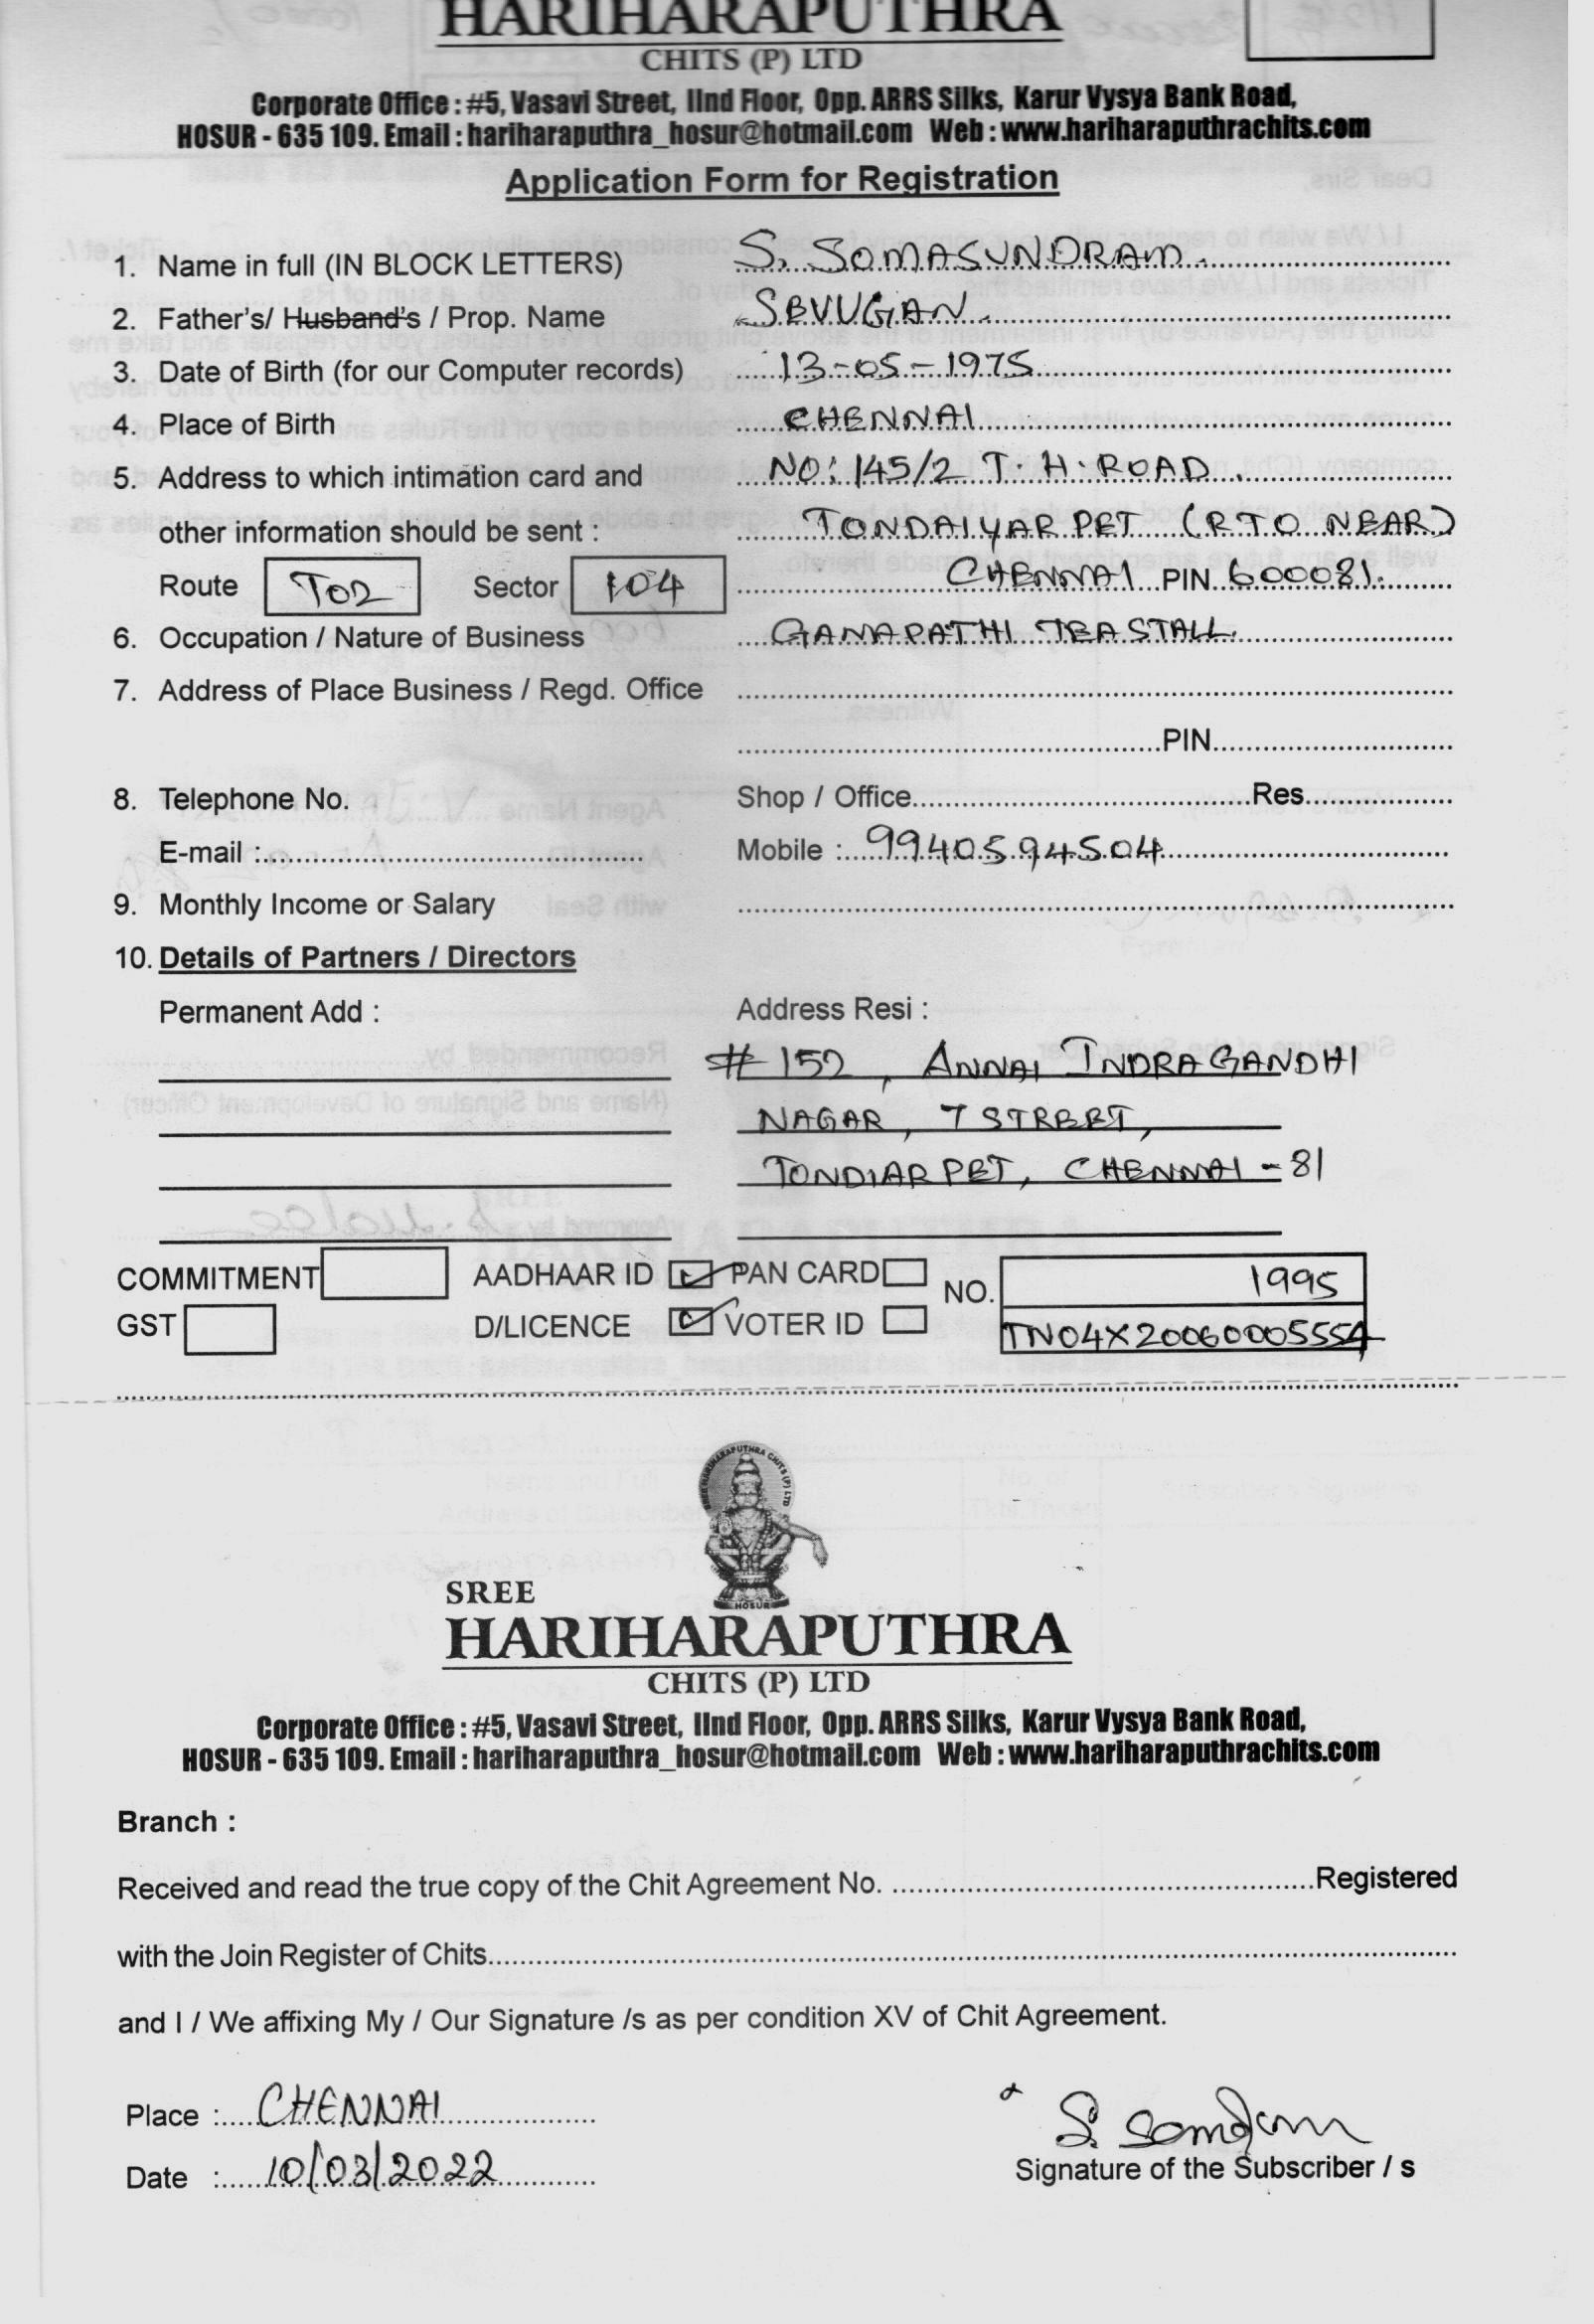 HARIHARAPUTHRA
CHITS (P) LTD
Corporate Office : #5, Vasavi Street, IInd Floor, Opp. ARRS Silks, Karur Vysya Bank Road,
HOSUR - 635 109. Email : hariharaputhra_hosur@hotmail.com Web : www.hariharaputhrachits.com
Application Form for Registration
1. Name in full (IN BLOCK LETTERS) S. SOMASUNDRAM.
2. Father's/ Husband's / Prop. Name SEVUGAN.
3. Date of Birth (for our Computer records) 13-05-1975
4. Place of Birth CHENNAI
5. Address to which intimation card and NO: 145/2 T.H.ROAD.
other information should be sent : TONDAIYARPET (RTO NEAR)
Route T02 Sector 104 CHENNAI PIN 600081.
6. Occupation / Nature of Business GANAPATHI TEA STALL.
7. Address of Place Business / Regd. Office
PIN
8. Telephone No. Shop / Office Res
E-mail : Mobile : 9940594504
9. Monthly Income or Salary
10. Details of Partners / Directors
Permanent Add : Address Resi :
# 152, ANNAI INDRA GANDHI
NAGAR, 7 STREET,
TONDIARPET, CHENNAI - 81
COMMITMENT AADHAAR ID PAN CARD NO. 1995
GST D/LICENCE VOTER ID TN04X20060005554
SREE HARIHARAPUTHRA CHITS (P) LTD
HOSUR
SREE
HARIHARAPUTHRA
CHITS (P) LTD
Corporate Office : #5, Vasavi Street, IInd Floor, Opp. ARRS Silks, Karur Vysya Bank Road,
HOSUR - 635 109. Email : hariharaputhra_hosur@hotmail.com Web : www.hariharaputhrachits.com
Branch :
Received and read the true copy of the Chit Agreement No. Registered
with the Join Register of Chits
and I / We affixing My / Our Signature /s as per condition XV of Chit Agreement.
Place : CHENNAI
Date : 10/03/2022
Signature of the Subscriber / s